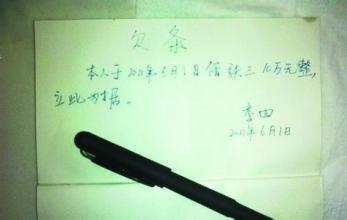 欠条
本人于2011年5月1日借张三10万元整,
立此为据。
李四
2011年6月1日